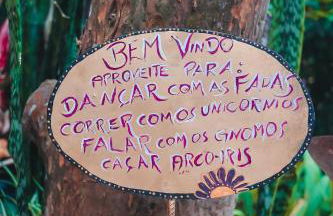 BEM VINDO
APROVEITE PARA:
DANÇAR COM AS FADAS
CORRER COM OS UNICORNIOS
FALAR COM OS GNOMOS
CAÇAR ARCO-IRIS